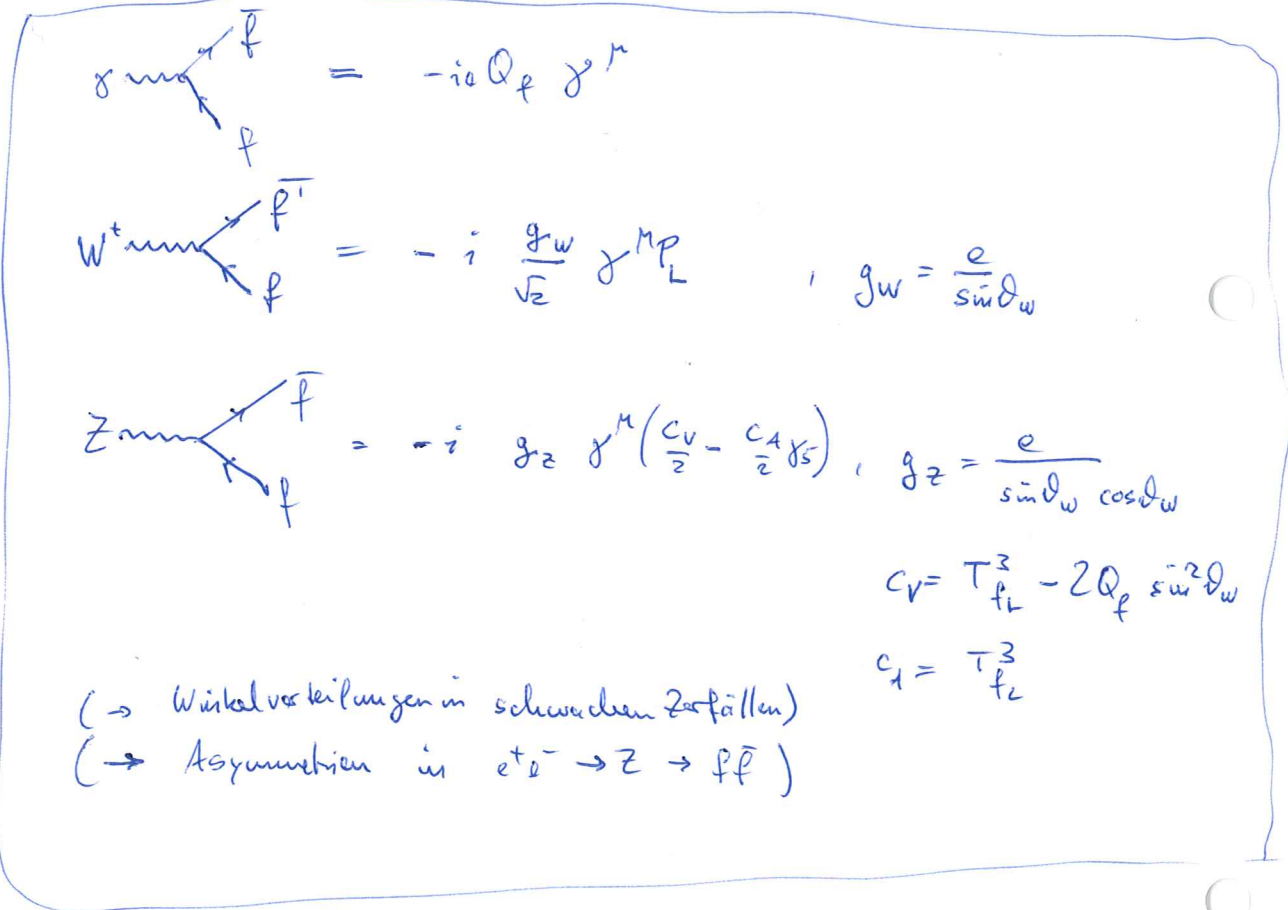 γ f̄ f = -ie Q_f γ^μ
W⁺ f̄' f = - i g_w/√2 γ^μ P_L , g_w = e/sinθ_w
Z f̄ f = - i g_z γ^μ (c_V/2 - c_A/2 γ_5) , g_z = e/(sinθ_w cosθ_w)
c_V = T^3_{f_L} - 2Q_f sin²θ_w
c_A = T^3_{f_L}
(→ Winkelverteilungen in schwachen Zerfällen)
(→ Asymmetrien in e⁺e⁻ → Z → f f̄ )